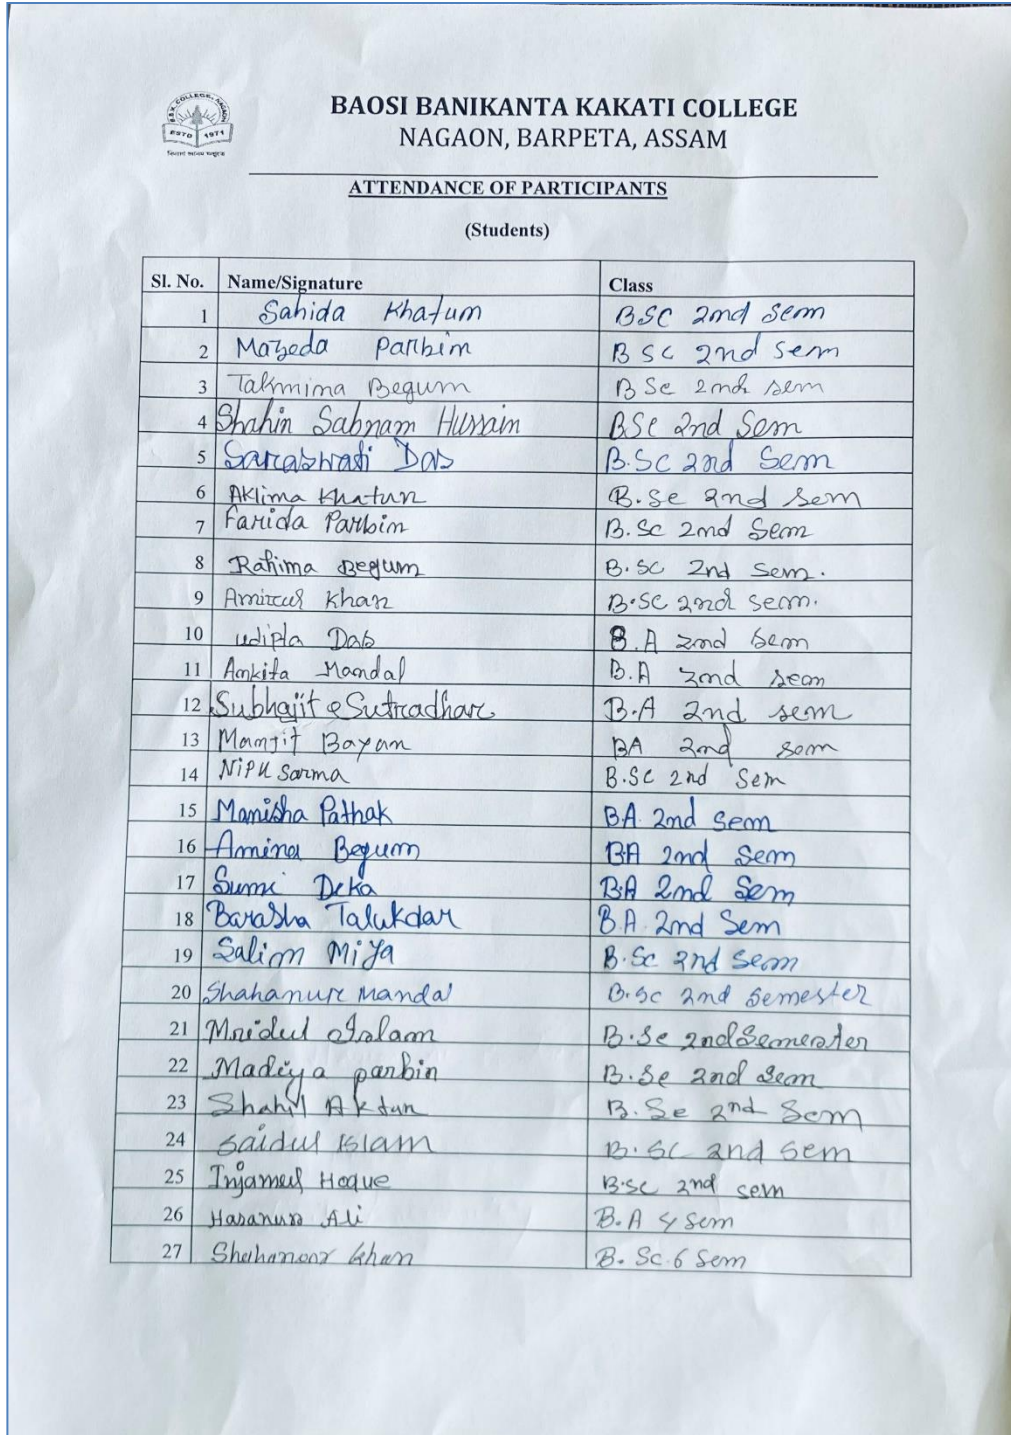 B.B.K. COLLEGE, NAGAON
ESTD 1971
BAOSI BANIKANTA KAKATI COLLEGE
NAGAON, BARPETA, ASSAM
ATTENDANCE OF PARTICIPANTS
(Students)
Sl. No. Name/Signature Class
1 Sahida Khatum BSC 2nd Sem
2 Mazeda Parbim B SC 2nd Sem
3 Takmima Begum B Sc 2nd sem
4 Shahin Sabnam Hussain BSc 2nd Sem
5 Saraswati Das B.Sc 2nd Sem
6 Aklima Khatun B.Sc 2nd Sem
7 Farida Parbin B.Sc 2nd Sem
8 Rahima Begum B.Sc 2nd Sem.
9 Amirul Khan B.SC 2nd sem.
10 udipta Das B.A 2nd Sem
11 Ankita Mandal B.A 2nd sem
12 Subhajit Sutradhar B.A 2nd sem
13 Manjit Bayan BA 2nd sem
14 Nipu Sarma B.Sc 2nd Sem
15 Manisha Pathak B.A. 2nd Sem
16 Amina Begum B.A 2nd Sem
17 Sumi Deka B.A 2nd Sem
18 Barasha Talukdar B.A. 2nd Sem
19 Salim Miya B.Sc 2nd Sem
20 Shahanur Mandal B.Sc 2nd Semester
21 Mridul Islam B.Sc 2nd Semester
22 Madiya parbin B.Sc 2nd Sem
23 Shahil Aktun B.Sc 2nd Sem
24 Saidul Islam B.Sc 2nd sem
25 Injamul Hoque B.Sc 2nd sem
26 Hasanur Ali B.A 4 Sem
27 Shahanoor khan B.Sc.6 Sem